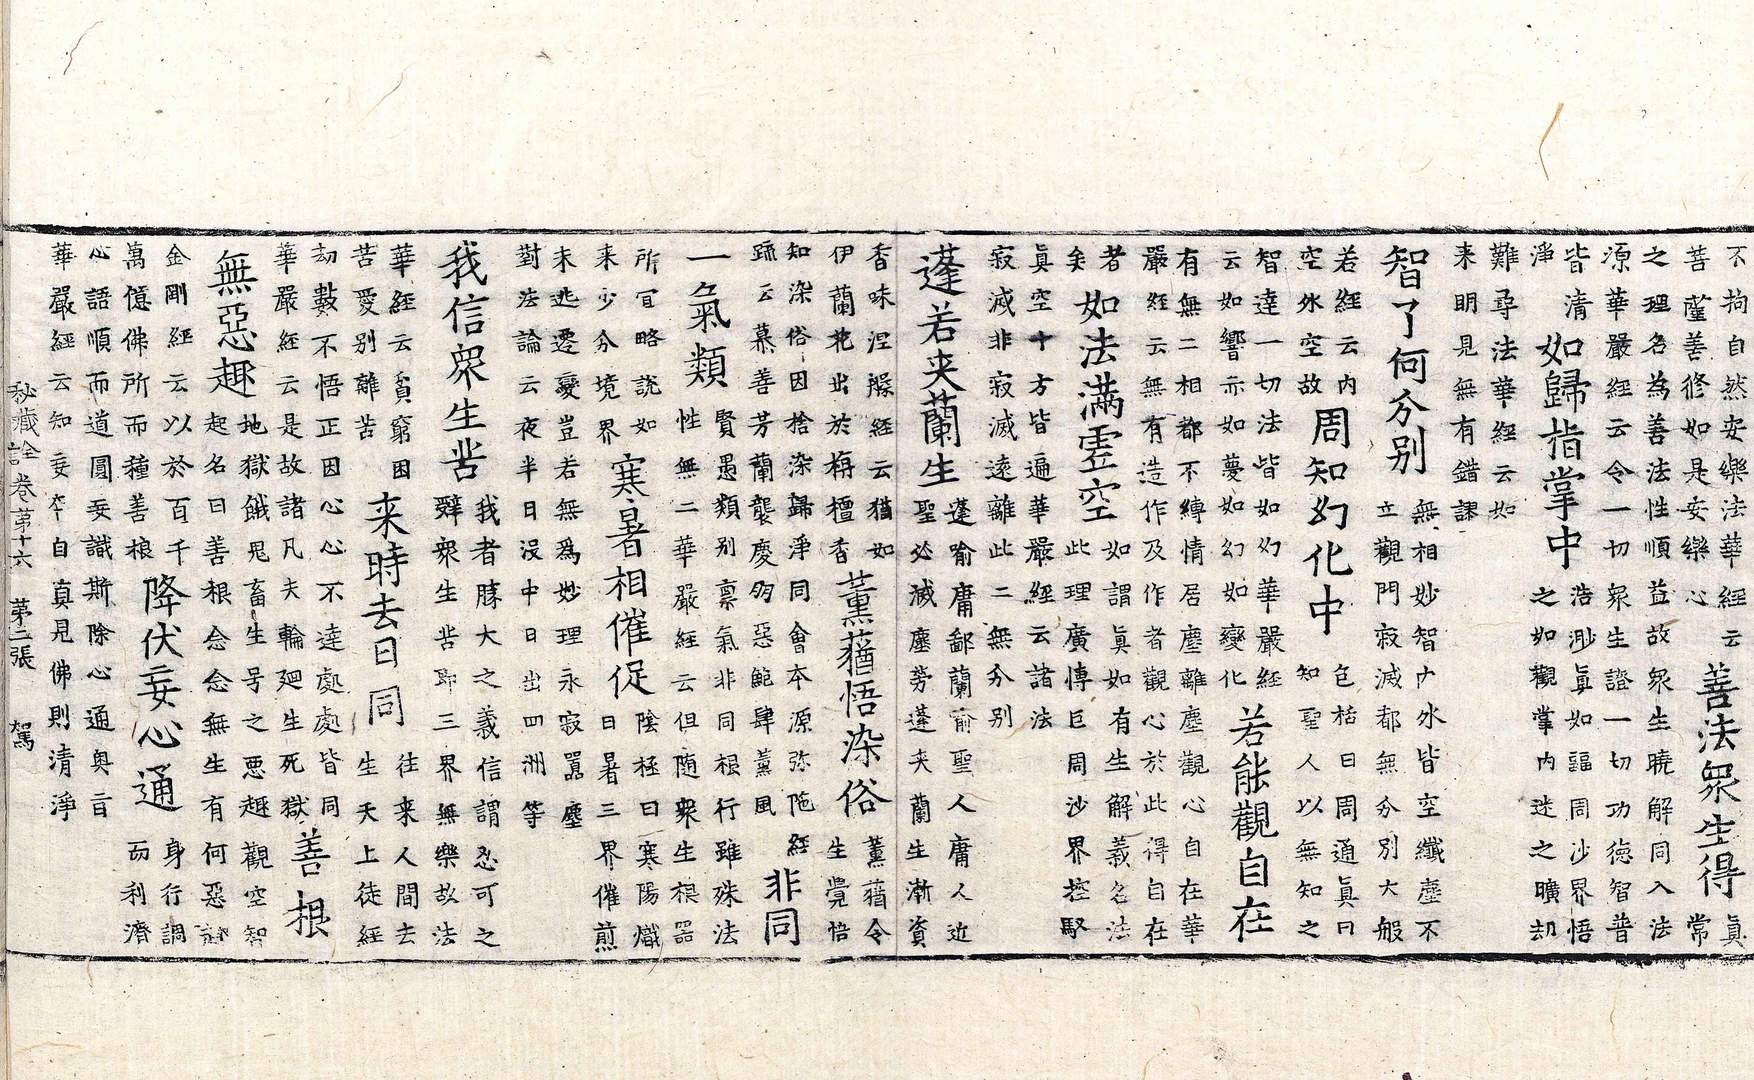 不拘自然安樂法華經云
菩薩善修如是安樂心
善法眾生得
真
常
之理名為善法性順益故眾生曉解同入法
源華嚴經云令一切眾生證一切功德智普
皆清
淨
如歸指掌中
浩渺真如謳同沙界悟
之如觀掌内迷之曠劫
難尋法華經云如
来明見無有錯謬
智了何分别
無相妙智内外皆空纖塵不
立觀門寂滅都無分别大般
若經云内
空外空故
周知幻化中
色栝日周通真曰
知聖人以無知之
智達一切法皆如幻華嚴經
云如響亦如夢如幻如變化
若能觀自在
有無二相都不縛情居塵離塵觀心自在華
嚴經云無有造作及作者觀心於此得自在
者
矣
如法滿虛空
如謂真如有生解義名法
此理廣博巨周沙界控馭
真空十方皆遍華嚴經云諸法
寂滅非寂滅遠離此二無分别
蓬若夹蘭生
蓬喻庸鄙蘭喻聖人庸人近
聖必滅塵勞蓬夹蘭生漸資
香味涅槃經云猶如
伊蘭花出於栴檀香
薰蕕悟染俗
薰蕕令
生覺悟
知染俗因捨染歸淨同會本源弥陁經
疏云慕善芳蘭襲慶惡鮑肆薰風
非同
一氣類
賢愚類别禀氣非同根行雖殊法
性無二華嚴經云但随眾生根器
所冝略説如
来少分境界
寒暑相催促
陰極曰寒陽熾
日暑三界催煎
未迯遷變豈若無為妙理永寂嚚塵
對法論云夜半日没中日出四洲等
我信眾生苦
我者勝大之義信謂忍可之
辭眾生苦即三界無樂故法
華經云貧窮困
苦愛别離苦
来時去日同
往来人間去
生天上徒經
劫數不悟正因心心不達處處皆同
華嚴經云是故諸凡夫輪廻生死獄
善根
無惡趣
地獄餓鬼畜生号之惡趣觀空智
起名曰善根念念無生有何惡
金剛經云以於百千
萬億佛所而種善根
降伏妄心通
身行調
而利濟
心語順而道圓妄識斯除心通奥旨
華嚴經云知妄本自真見佛則清淨
秘藏詮卷第十六 第二張 駕